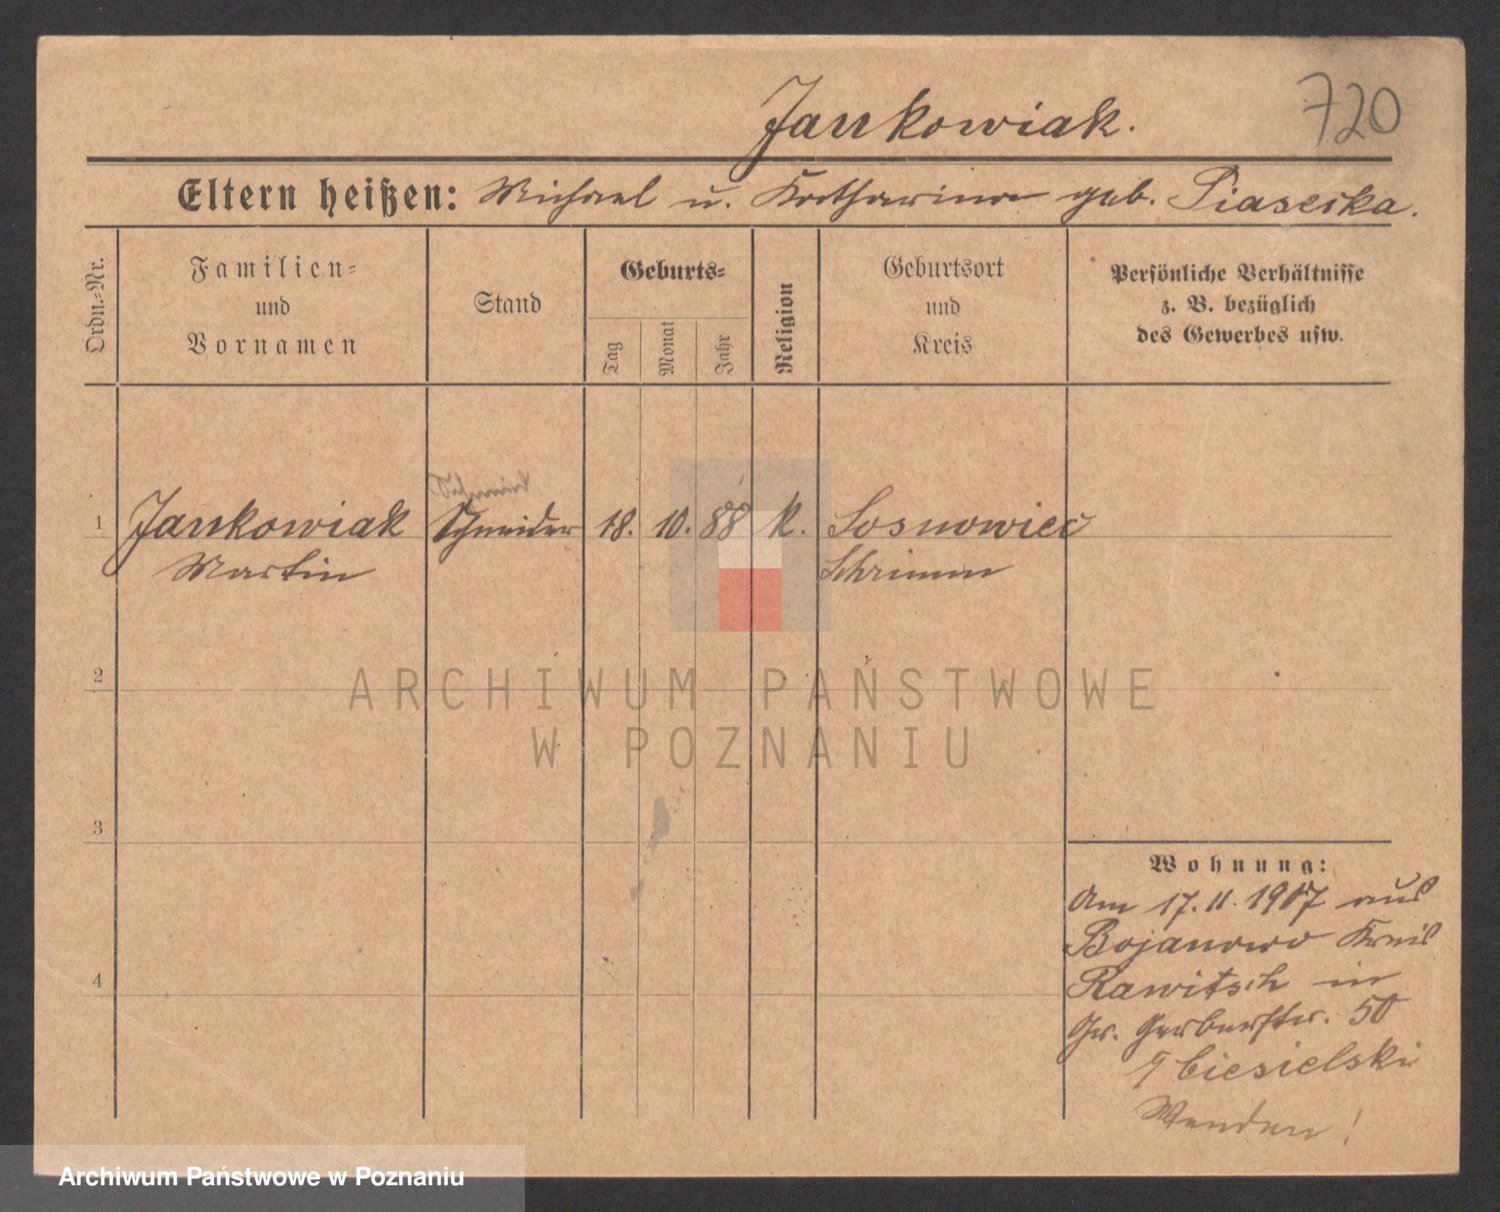 Jankowiak. 720
Eltern heißen: Michael u. Katharina geb. Piasecka.
Ordn.-Nr.
Familien-
und
Vornamen
Stand
Geburts-
Tag
Monat
Jahr
Religion
Geburtsort
und
Kreis
Persönliche Verhältnisse
z. B. bezüglich
des Gewerbes usw.
1 Jankowiak Schneider 18. 10. 88 k. Sosnowiec
Martin Schrimm
2
ARCHIWUM PAŃSTWOWE
W POZNANIU
3
Wohnung:
Am 17.11.1907 aus
Bojanowo Kreis
Rawitsch in
Gr. Gerberstr. 50
Ciesielski
4
Wenden!
Archiwum Państwowe w Poznaniu